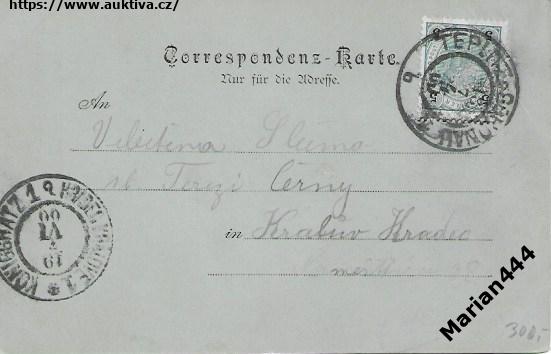 https://www.auktiva.cz/
Correspondenz-Karte.
Nur für die Adresse.
An
Velectěná Slečna
sl. Terezi Černy
in Králův Hradec
TEPLITZ-SCHÖNAU
KÖNIGGRÄTZ 1 HRADEC KRÁLOVÉ 1
19
VI
00
Marian444
300,-